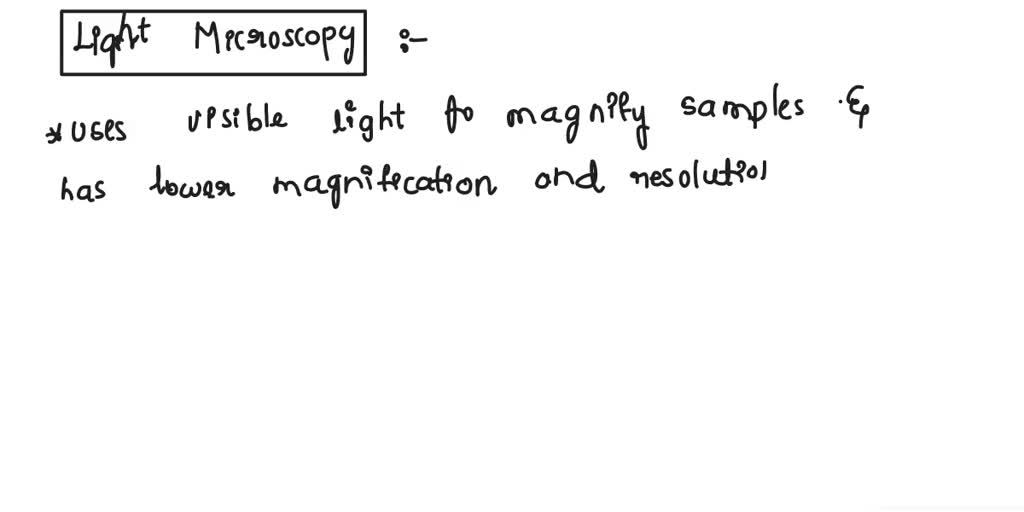 Light Microscopy :-
* uses visible light to magnify samples &
has lower magnification and resolution